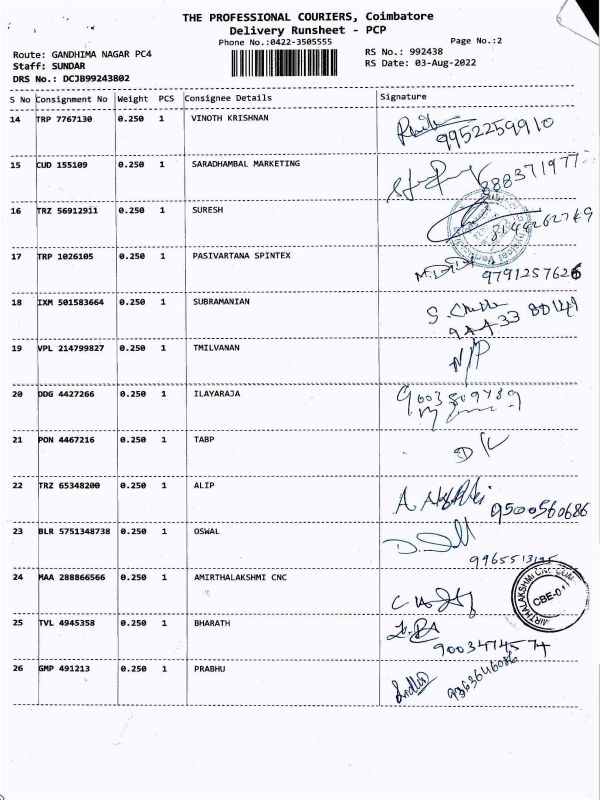 THE PROFESSIONAL COURIERS, Coimbatore
Delivery Runsheet - PCP
Phone No.:0422-3505555
Page No.:2
Route: GANDHIMA NAGAR PC4
RS No.: 992438
Staff: SUNDAR
RS Date: 03-Aug-2022
DRS No.: DCJB99243802
S No Consignment No Weight PCS Consignee Details Signature
14 TRP 7767130 0.250 1 VINOTH KRISHNAN
9952259910
15 CUD 155109 0.250 1 SARADHAMBAL MARKETING
888371977
16 TRZ 56912911 0.250 1 SURESH
8144262769
17 TRP 1026105 0.250 1 PASIVARTANA SPINTEX
9791257626
18 IXM 501583664 0.250 1 SUBRAMANIAN
94433 80149
19 VPL 214799827 0.250 1 TMILVANAN N/P
20 DDG 4427266 0.250 1 ILAYARAJA 9003809789
21 PON 4467216 0.250 1 TABP D/L
22 TRZ 65348200 0.250 1 ALIP
9500560686
23 BLR 5751348738 0.250 1 OSWAL
24 MAA 288866566 0.250 1 AMIRTHALAKSHMI CNC
CBE-01
25 TVL 4945358 0.250 1 BHARATH
9003474574
26 GMP 491213 0.250 1 PRABHU
9363646086